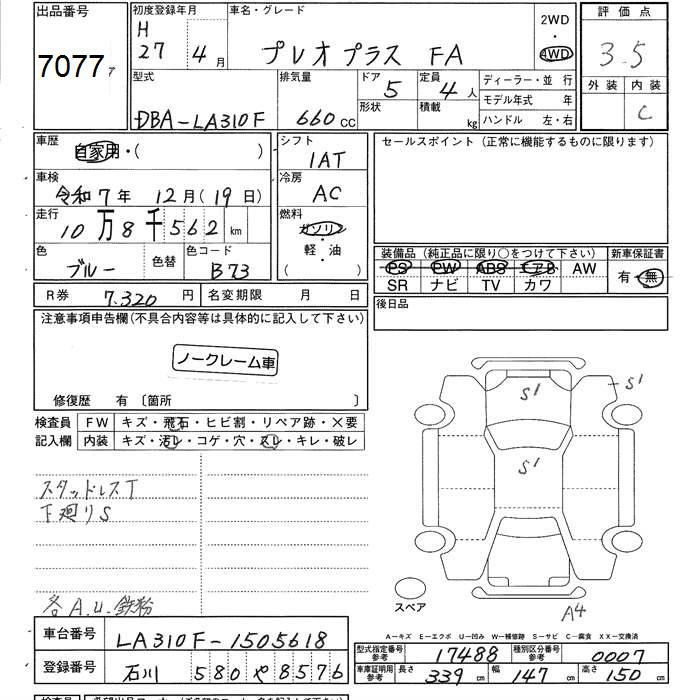 出品番号 7077 7
初度登録年月 H 27 4月
車名・グレード プレオプラス FA
2WD・4WD
評価点 3.5
外装 内装 C
型式 DBA-LA310F
排気量 660 cc
ドア 5 形状
定員 4人 積載 kg
ディーラー・並 行
モデル年式 年
ハンドル 左・右
車歴 自家用・( )
シフト 1AT
セールスポイント（正常に機能するものに限ります）
車検 令和7年 12月（19日）
冷房 AC
走行 10万8千562 km
燃料 ガソリン・軽・油 ( )
色 ブルー 色替 色コード B73
装備品（純正品に限り○をつけて下さい） 新車保証書
PS PW ABS エアB AW 有・無
SR ナビ TV カワ
R券 7.320 円 名変期限 月 日
後日品
注意事項申告欄(不具合内容等は具体的に記入して下さい)
ノークレーム車
修復歴 有〔箇所 〕
検査員 FW キズ・飛石・ヒビ割・リペア跡・×要
記入欄 内装 キズ・汚レ・コゲ・穴・スレ・キレ・破レ
S1
S1
S1
スタッドレスT
下廻りS
各A.U.鉄粉
スペア
A4
A－キズ E－エクボ U－凹み W－補修跡 S－サビ C－腐食 XX－交換済
車台番号 LA310F-1505618
登録番号 石川 580 や 8576
型式指定番号 参考 17488 種別区分番号 参考 0007
車庫証明用 参考 長さ 339 cm 幅 147 cm 高さ 150 cm
検査員